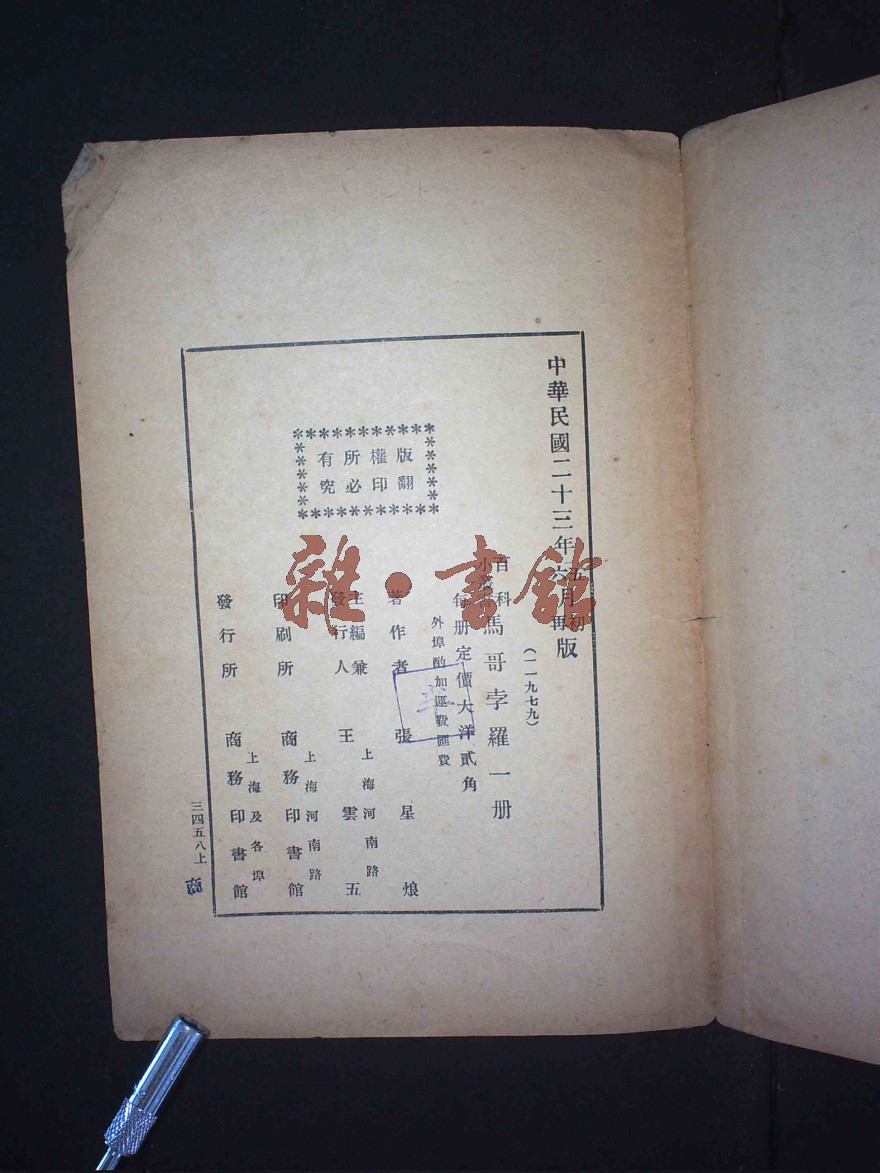 中華民國二十三年五月初版
六月再版
(一一九七九)
百科小叢書
馬哥孛羅一册
每册定價大洋貳角
外埠酌加運費匯費
著作者 張星烺
主編兼發行人 王雲五
上海河南路
印刷所 商務印書館
上海河南路
發行所 商務印書館
上海及各埠
版權所有
翻印必究
三四五八上
商
雜·書館